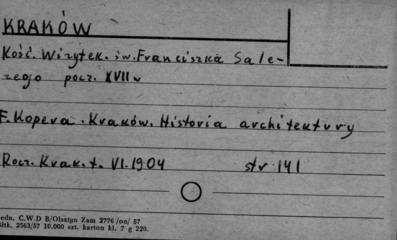 KRAKÓW
Kość. Wizytek. św. Franciszka Sale-
zego pocz. XVII w
F. Kopera. Kraków. Historia architektury
Rocz. Krak. t. VI. 1904 str 141
edn. C.W.D B/Olsztyn Zam 2776/on/ 57
Bltk. 2563/57 10.000 szt. karton kl. 7 g 220.